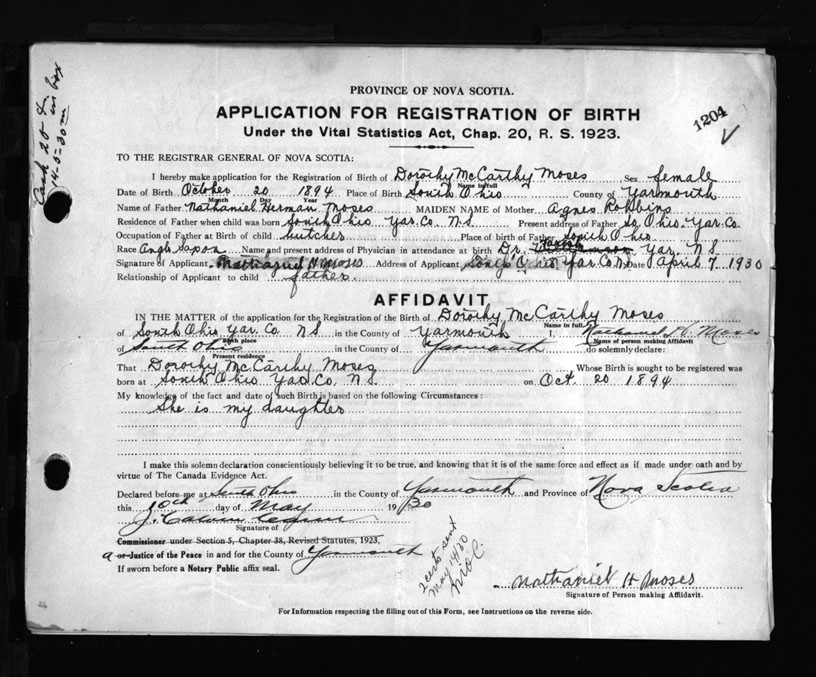 Cash 20 ¢
in box
14-5-30 m
PROVINCE OF NOVA SCOTIA.
APPLICATION FOR REGISTRATION OF BIRTH
Under the Vital Statistics Act, Chap. 20, R. S. 1923.
1204
TO THE REGISTRAR GENERAL OF NOVA SCOTIA:
I hereby make application for the Registration of Birth of Dorothy McCarthy Moses Sex female
Name in full
Date of Birth October 20 1894 Place of Birth South Ohio County of Yarmouth
Month Day Year
Name of Father Nathaniel Herman Moses MAIDEN NAME of Mother Agnes Robbins
Residence of Father when child was born South Ohio Yar. Co. N S Present address of Father So. Ohio. Yar. Co
Occupation of Father at Birth of child butcher Place of birth of Father South Ohio
Race Anglo Saxon Name and present address of Physician in attendance at birth Dr. Yar. N. S.
Signature of Applicant Nathaniel H Moses Address of Applicant South Ohio Yar. Co N S Date April 7 1930
Relationship of Applicant to child father.
AFFIDAVIT
IN THE MATTER of the application for the Registration of the Birth of Dorothy McCarthy Moses
Name in full
of South Ohio Yar. Co. N S in the County of Yarmouth I, Nathaniel H. Moses
Birth place Name of person making Affidavit
of South Ohio in the County of Yarmouth do solemnly declare:
Present residence
That Dorothy McCarthy Moses Whose Birth is sought to be registered was
born at South Ohio Yar. Co. N S. on Oct. 20 1894
My knowledge of the fact and date of such Birth is based on the following Circumstances:
She is my daughter
I make this solemn declaration conscientiously believing it to be true, and knowing that it is of the same force and effect as if made under oath and by
virtue of The Canada Evidence Act.
Declared before me at South Ohio in the County of Yarmouth and Province of Nova Scotia
this 10th day of May 1930
J. Calvin
Signature of
Commissioner under Section 5, Chapter 38, Revised Statutes, 1923,
a or Justice of the Peace in and for the County of Yarmouth
If sworn before a Notary Public affix seal.
2 certs sent
May 14/30
Nathaniel H Moses
Signature of Person making Affidavit.
For Information respecting the filling out of this Form, see Instructions on the reverse side.